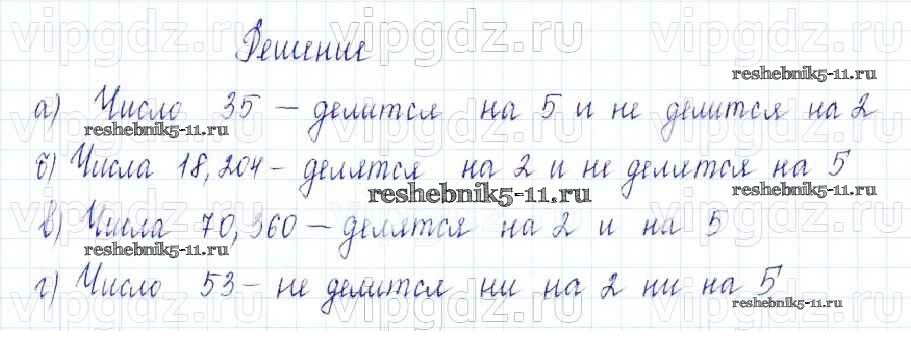 vipgdz.ru vipgdz.ru vipgdz.ru
Решение
reshebnik5-11.ru
а) Число 35 – делится на 5 и не делится на 2
reshebnik5-11.ru
vipgdz.ru vipgdz.ru vipgdz.ru
б) Числа 18, 204 – делятся на 2 и не делятся на 5
reshebnik5-11.ru reshebnik5-11.ru
vipgdz.ru vipgdz.ru vipgdz.ru
в) Числа 70, 360 – делятся на 2 и на 5
reshebnik5-11.ru reshebnik5-11.ru
г) Число 53 – не делится ни на 2 ни на 5
reshebnik5-11.ru
vipgdz.ru vipgdz.ru vipgdz.ru